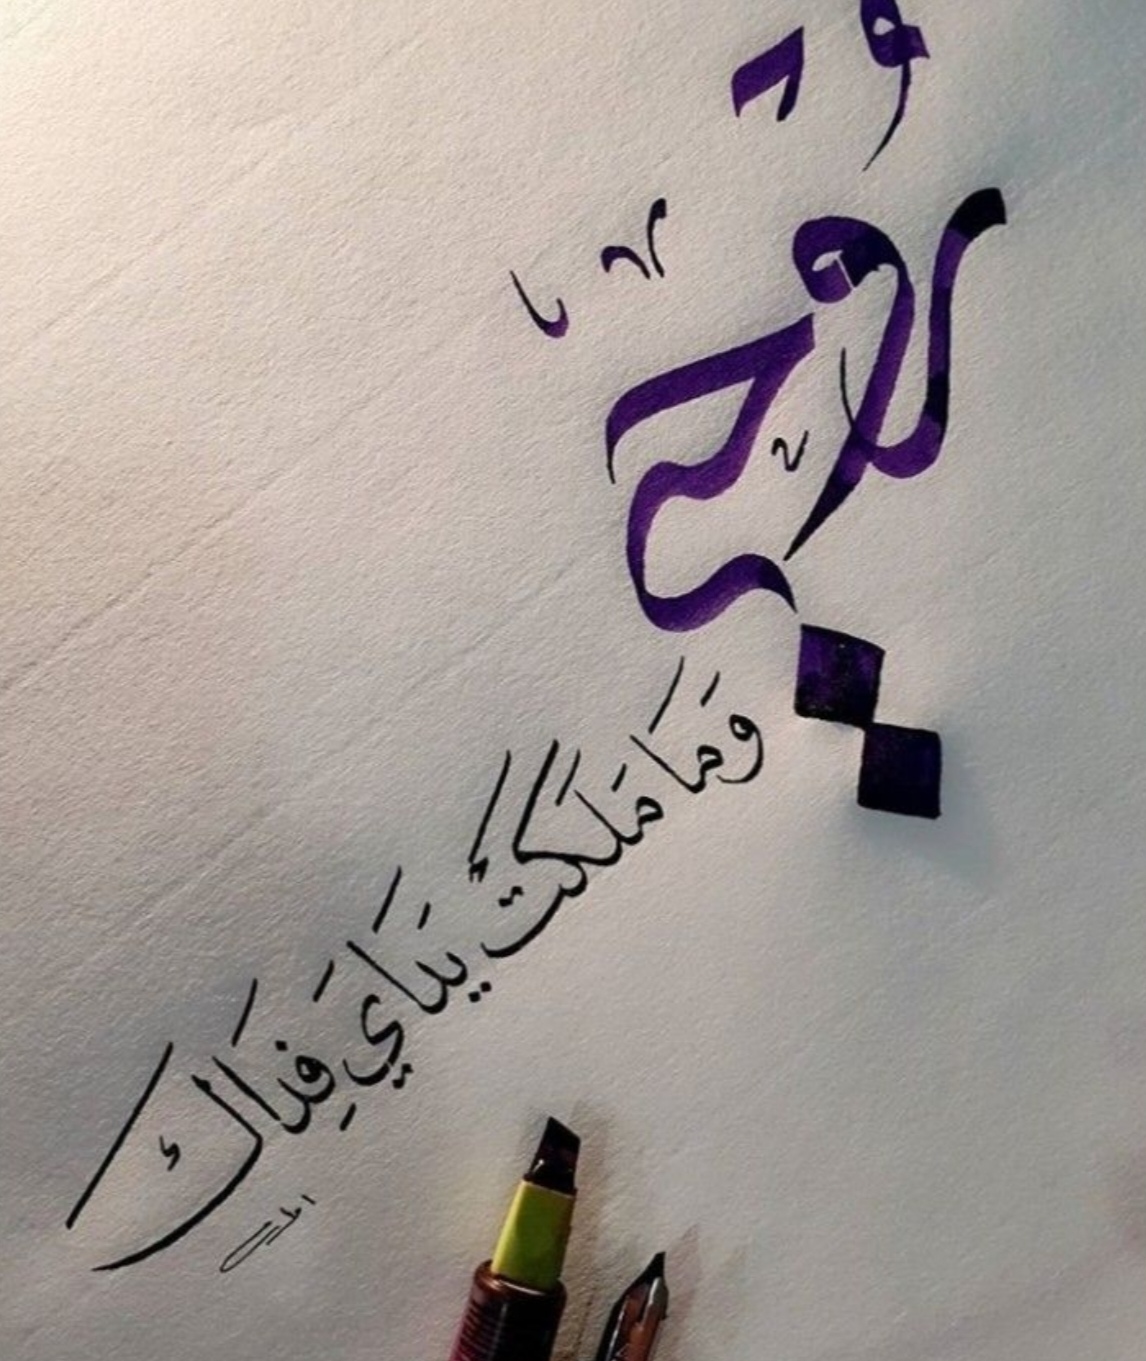 رُوحي
وَمَا مَلَكَتْ يَدَايَ فِدَاكَ